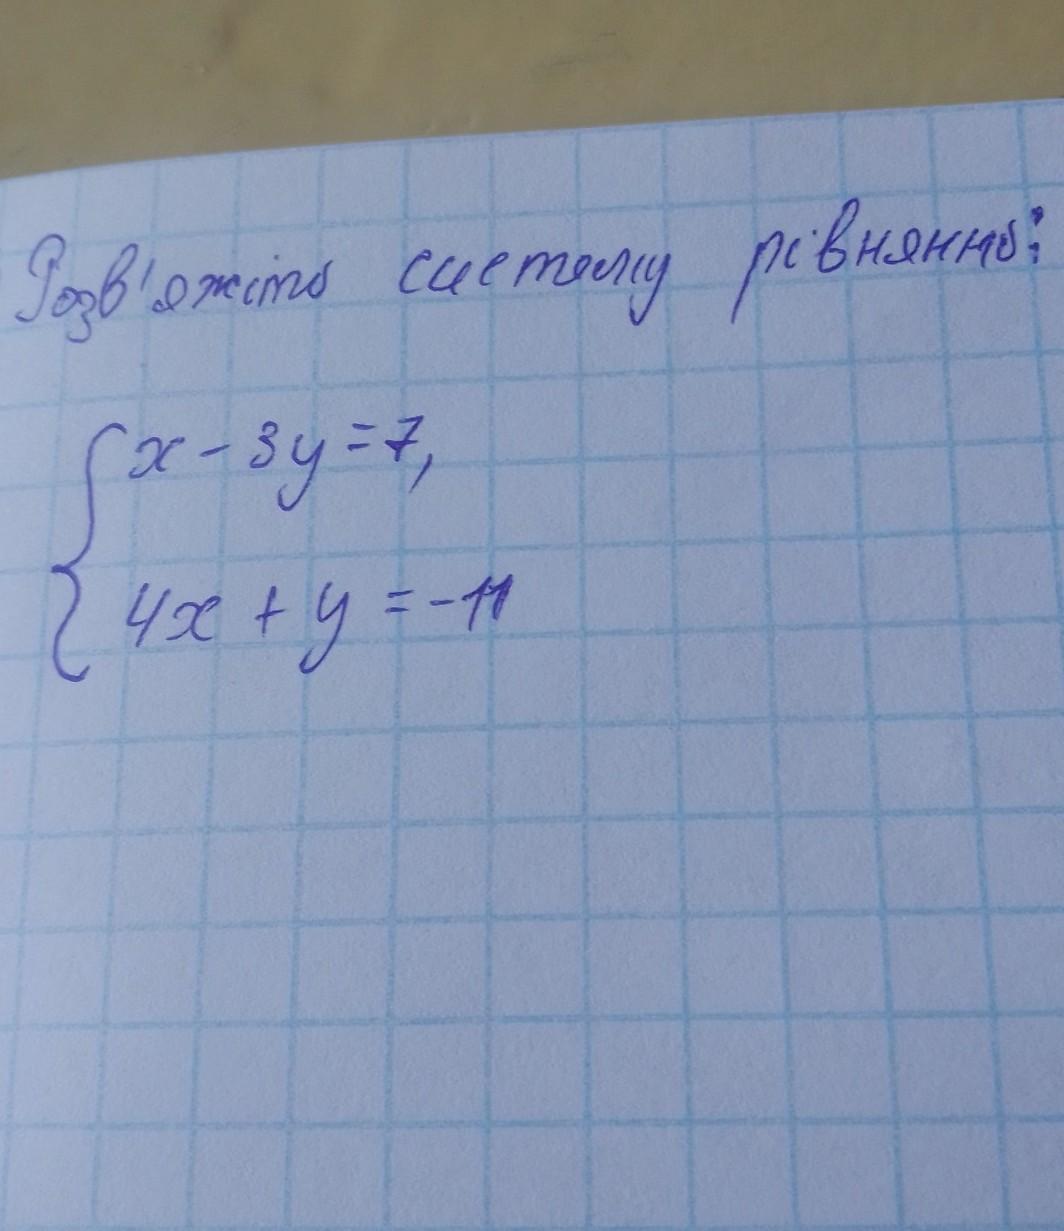 Розв'яжіть систему рівнянь:
x - 3y = 7,
4x + y = -11